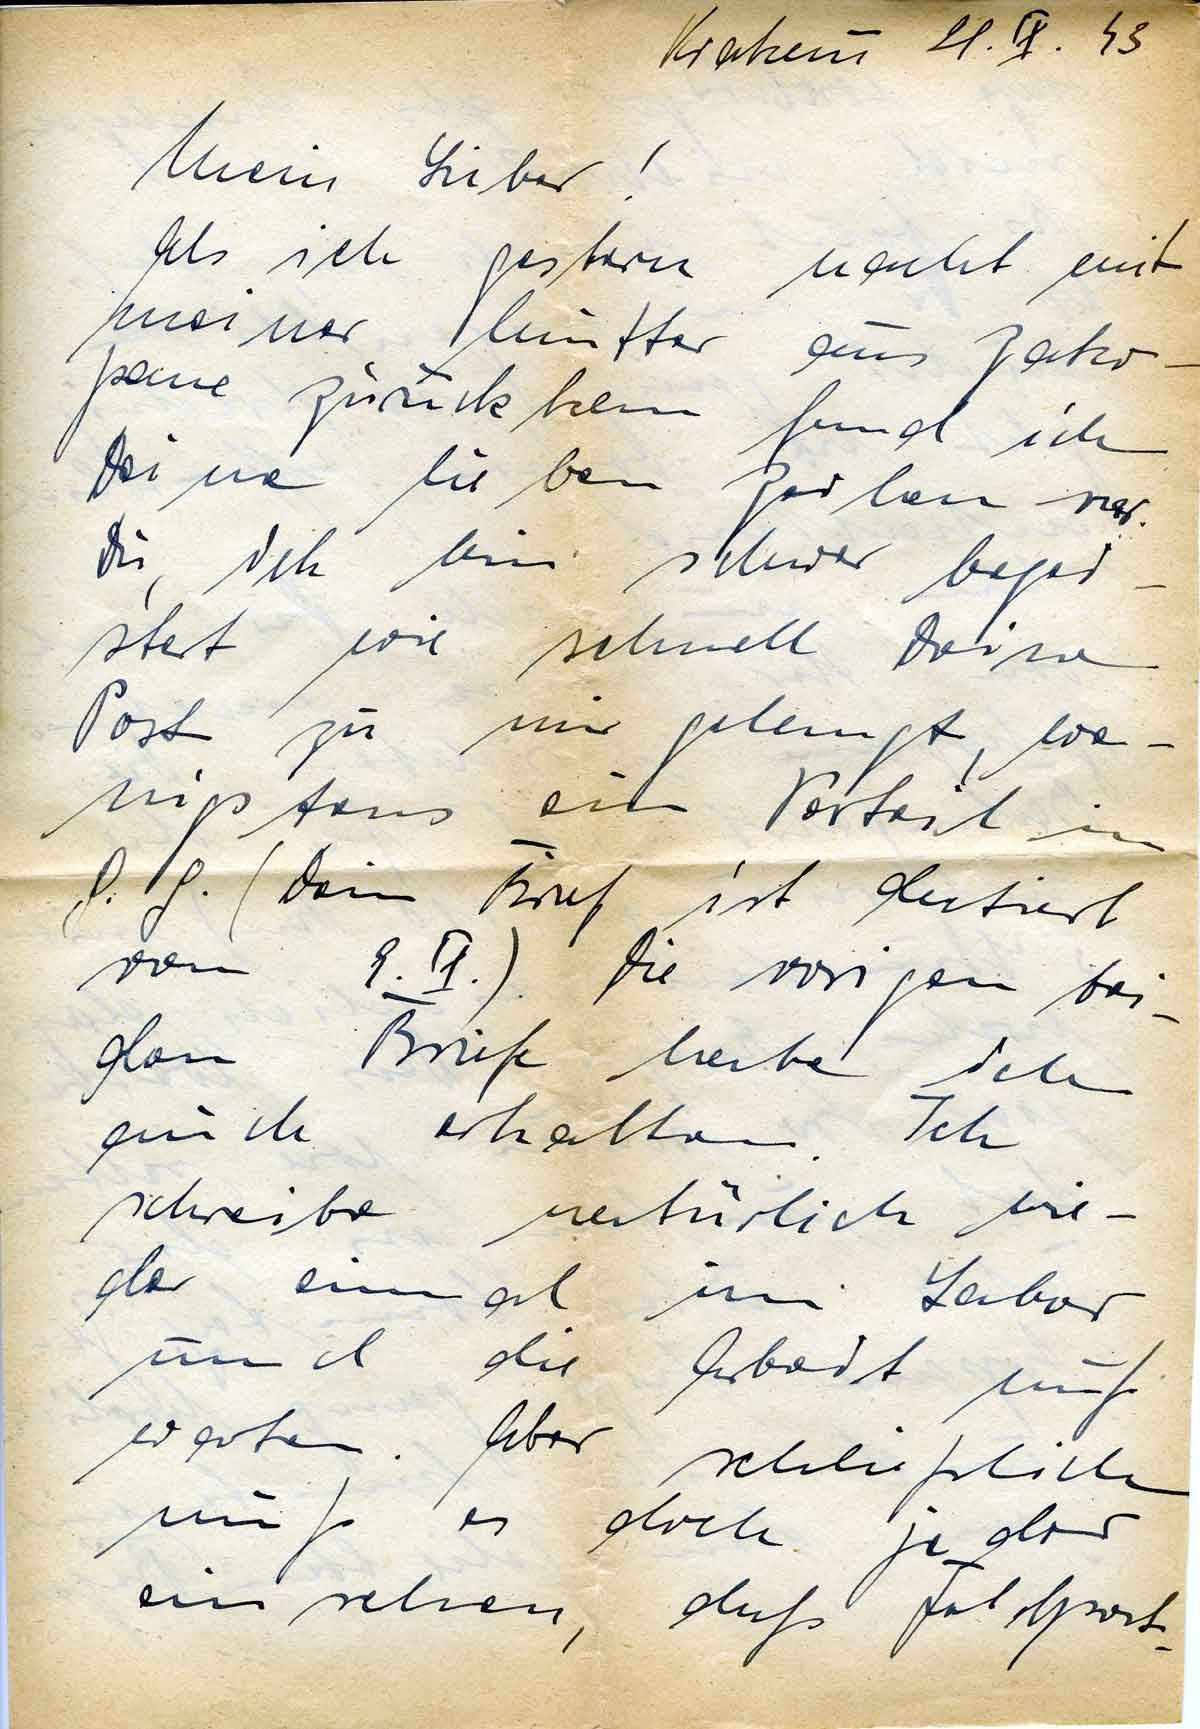 Krakau 21. IX. 43
Mein Lieber!
Als ich gestern nacht mit
meiner Mutter aus Zako-
pane zurückkam fand ich
Deine lieben Zeilen vor.
Du, ich bin schwer begei-
stert wie schnell Deine
Post zu mir gelangt, we-
nigstens ein Vorteil im
G. G. (Dein Brief ist datiert
vom 9. IX.). Die vorigen bei-
den Briefe habe ich
auch erhalten. Ich
schreibe natürlich wie-
der einmal im Labor
und die Arbeit muß
warten. Aber schließlich
muß es doch jeder
einsehen, daß Feldpost-